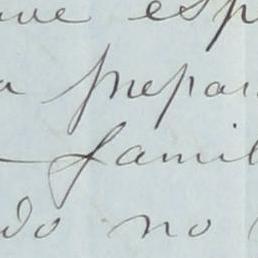 ave esp
a prepar
famil
do no